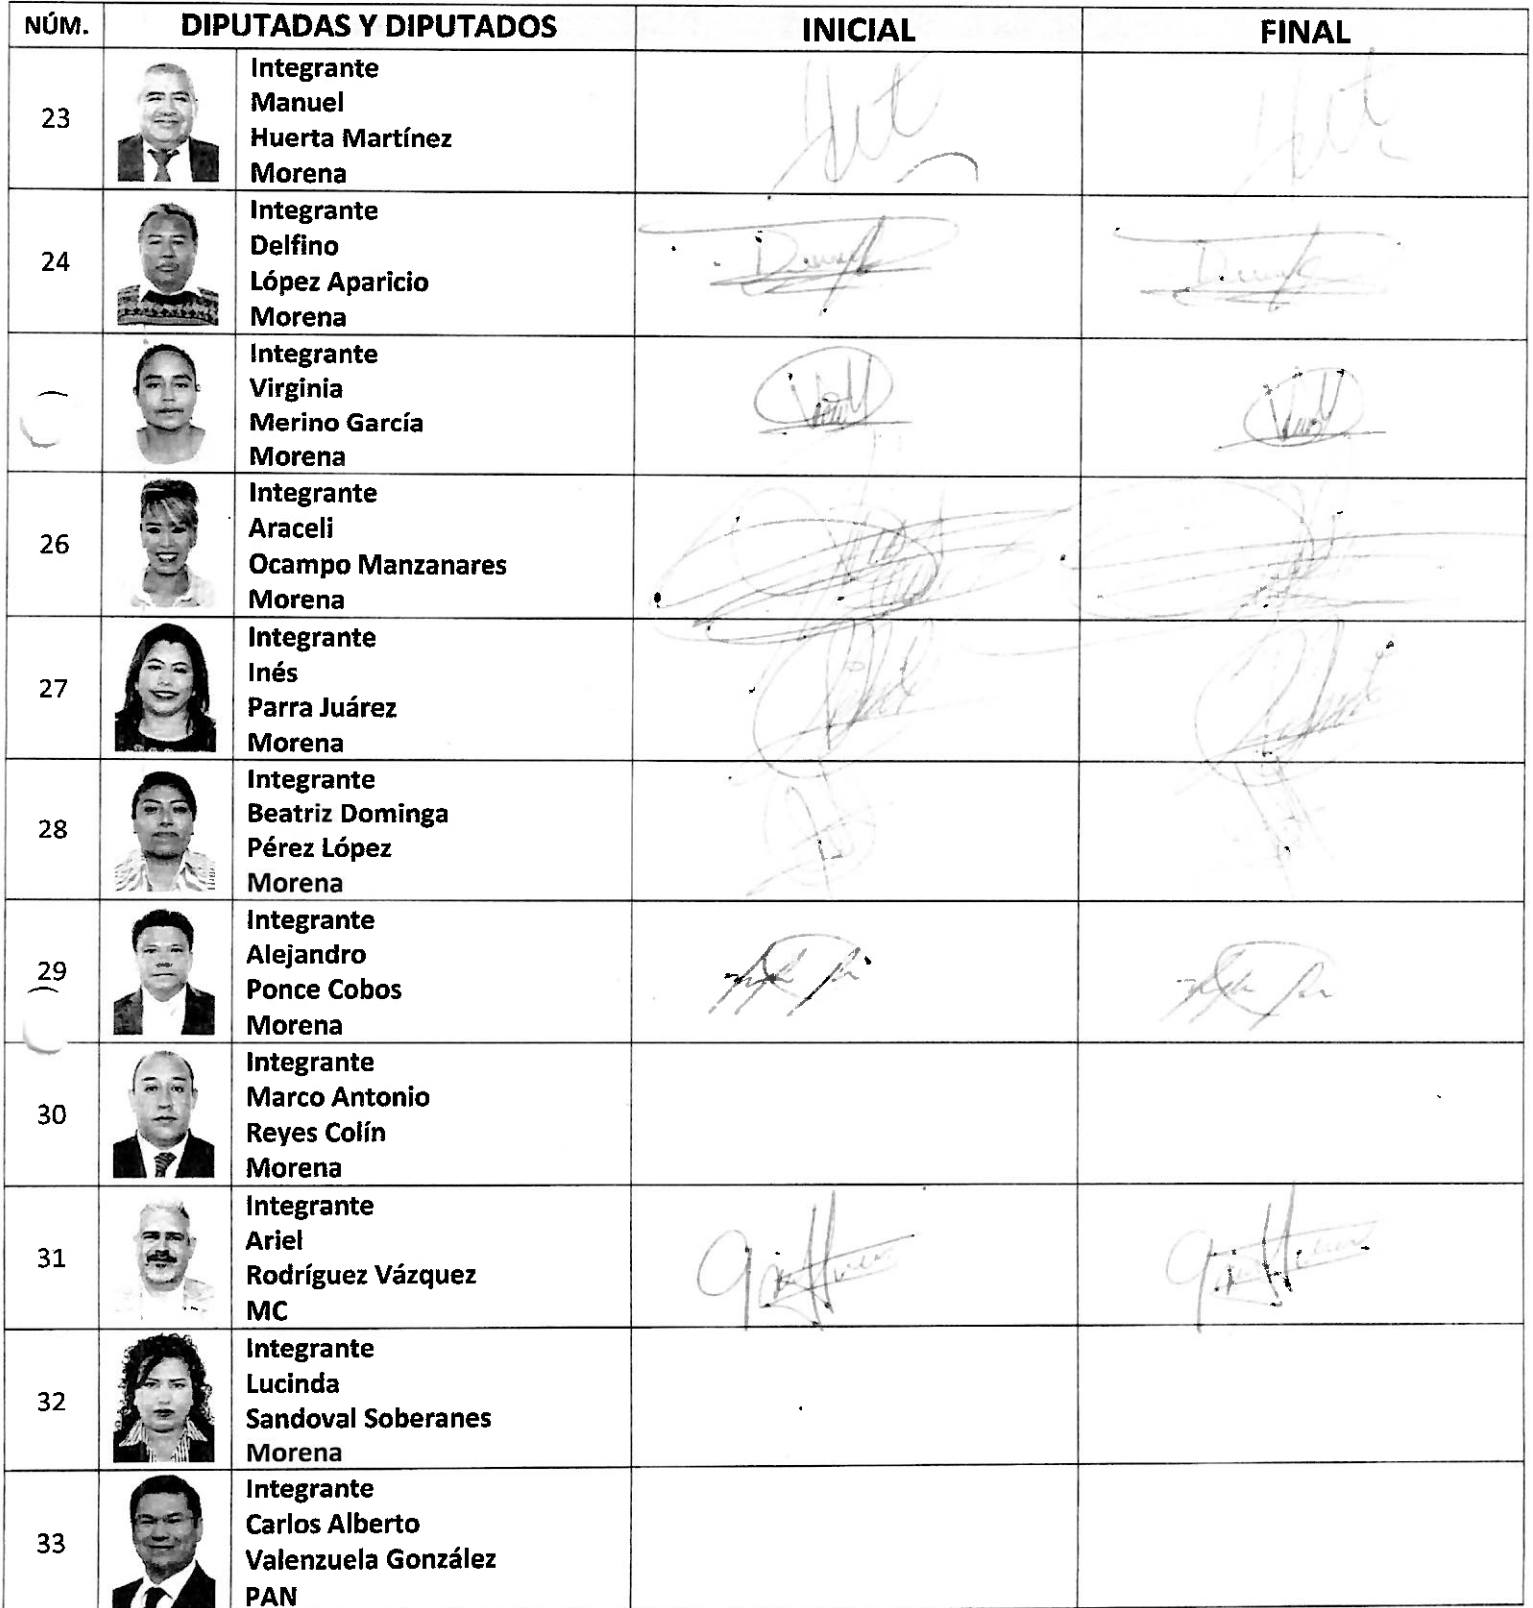 NÚM. DIPUTADAS Y DIPUTADOS INICIAL FINAL
23
Integrante
Manuel
Huerta Martínez
Morena
24
Integrante
Delfino
López Aparicio
Morena
Integrante
Virginia
Merino García
Morena
26
Integrante
Araceli
Ocampo Manzanares
Morena
27
Integrante
Inés
Parra Juárez
Morena
28
Integrante
Beatriz Dominga
Pérez López
Morena
29
Integrante
Alejandro
Ponce Cobos
Morena
30
Integrante
Marco Antonio
Reyes Colín
Morena
31
Integrante
Ariel
Rodríguez Vázquez
MC
32
Integrante
Lucinda
Sandoval Soberanes
Morena
33
Integrante
Carlos Alberto
Valenzuela González
PAN